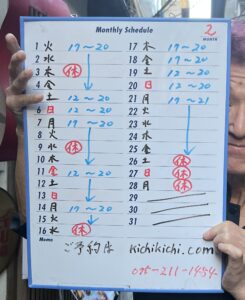 Monthly Schedule
2
MONTH
1 火 19〜20
2 水
3 木 休
4 金
5 土 12〜20
6 日 12〜20
7 月 19〜20
8 火
9 水 休
10 木
11 金 12〜20
12 土
13 日
14 月 19〜20
15 火
16 水 休
17 木 19〜20
18 金 19〜20
19 土 12〜20
20 日 12〜20
21 月 19〜21
22 火
23 水
24 木
25 金
26 土 休
27 日 休
28 月 休
29
30
31
Memo
ご予約は kichikichi.com
075-211-1484